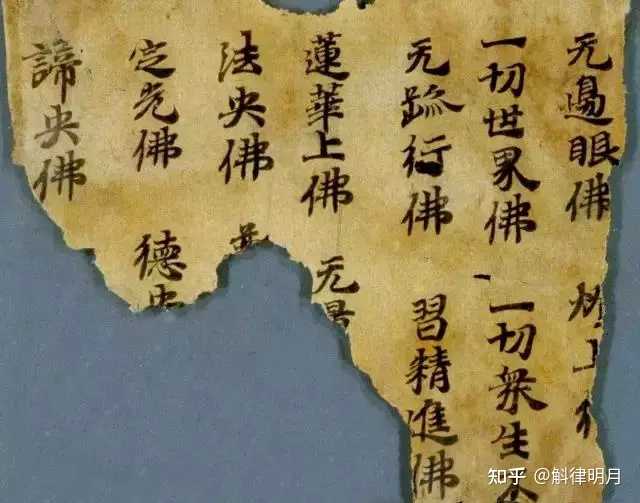 无邊眼佛 上
一切世界佛 一切衆生
无跡行佛 習精進佛
蓮華上佛 无
法央佛
定光佛 德
諦央佛
知乎 @斛律明月